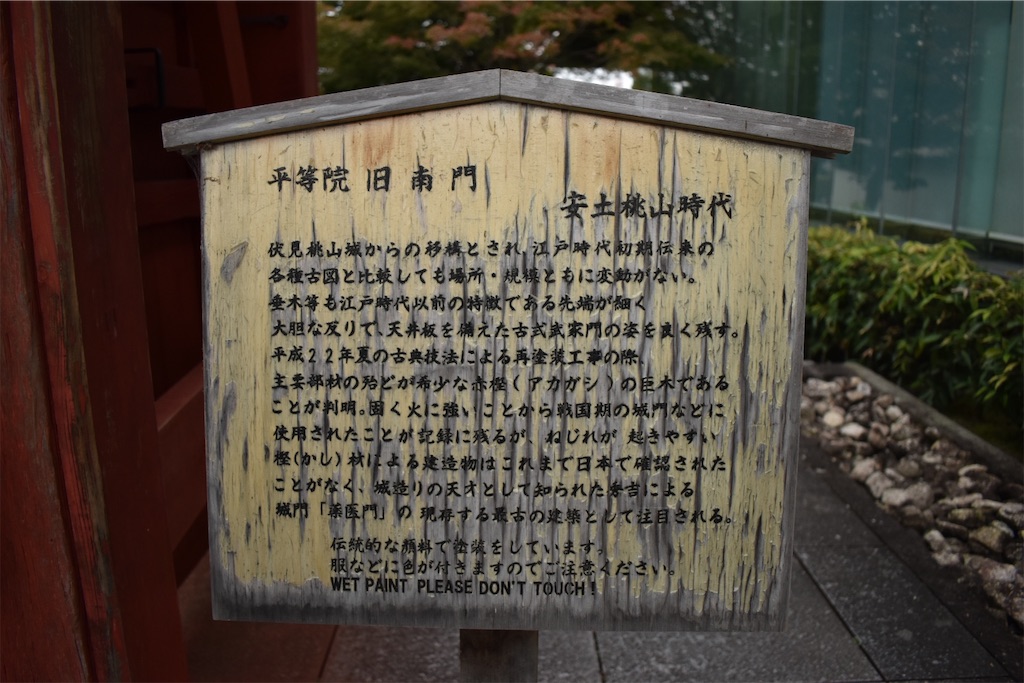 平等院 旧 南門
安土桃山時代
伏見桃山城からの移構とされ、江戸時代初期伝来の
各種古図と比較しても場所・規模ともに変動がない。
垂木等も江戸時代以前の特徴である先端が細く
大胆な反りで、天井板を備えた古式武家門の姿を良く残す。
平成22年夏の古典技法による再塗装工事の際、
主要部材の殆どが希少な赤樫(アカガシ)の巨木である
ことが判明。固く火に強いことから戦国期の城門などに
使用されたことが記録に残るが、ねじれが 起きやすい
樫(かし)材による建造物はこれまで日本で確認された
ことがなく、城造りの天才として知られた秀吉による
城門「薬医門」の 現存する最古の建築として注目される。
伝統的な顔料で塗装をしています。
服などに色が付きますのでご注意ください。
WET PAINT PLEASE DON'T TOUCH!